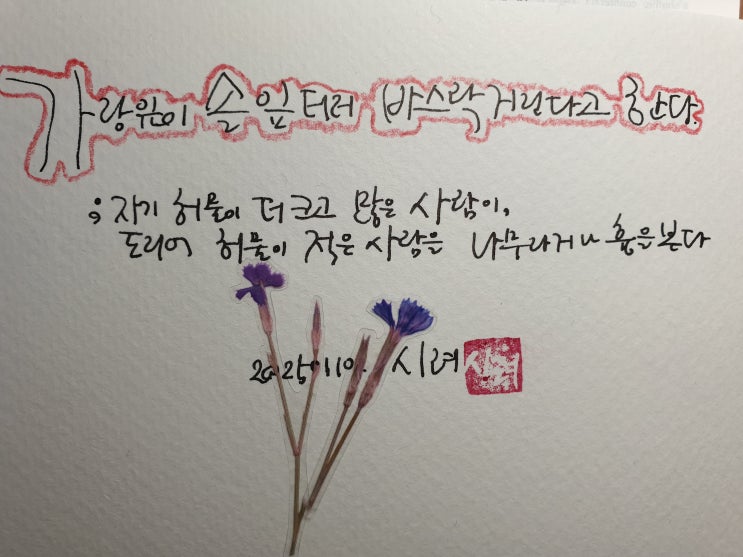 가랑잎이 솔잎더러 바스락거린다고 흉본다.
; 자기 허물이 더 크고 많은 사람이,
도리어 허물이 적은 사람을 나무라거나 흉을 본다
시려